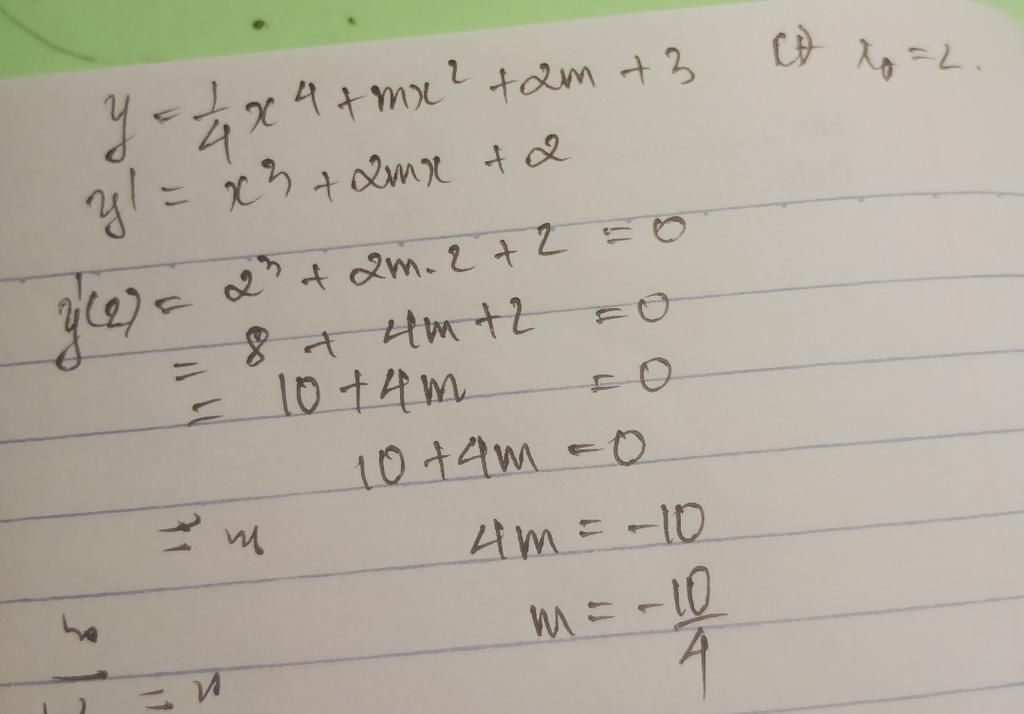 y = 1/4 x⁴ + mx² + 2m + 3 CĐ x₀ = 2.
y' = x³ + 2mx + 2
y'(2) = 2³ + 2m.2 + 2 = 0
= 8 + 4m + 2 = 0
= 10 + 4m = 0
10 + 4m = 0
= m 4m = -10
m = -10/4